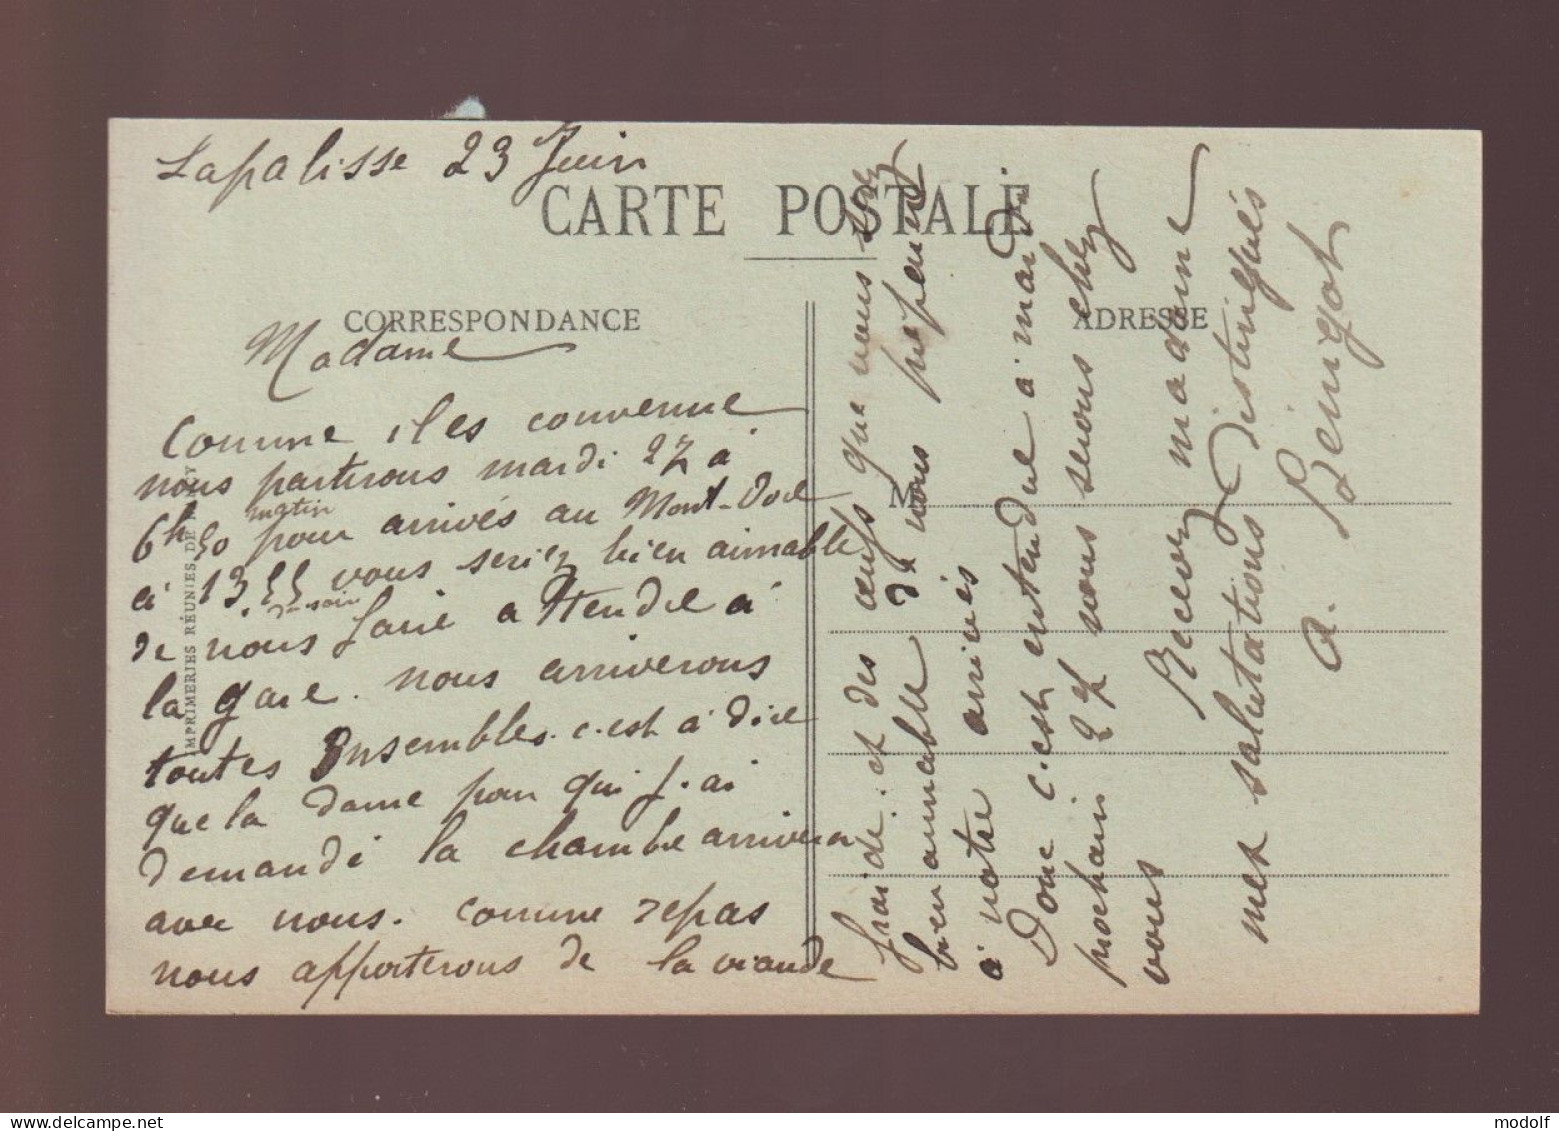 Lapalisse 23 Juin
CARTE POSTALE
CORRESPONDANCE
ADRESSE
Madame
Comme il es convenue
nous partirons mardi 27 à
6h 50 matin pour arrivés au Mont-Dore
à 13.55 du soir vous seriez bien aimable
de nous faire attendre à
la gare. nous arriverons
toutes Ensembles. c.est à dire
que la dame pour qui j.ai
demandé la chambre arrivera
avec nous. comme repas
nous apporterons de la viande
froide. et des œufs que vous
bien aimable de nous préparez
à notre arrivés
Donc c.est entendue à mardi
prochain 27 nous serons chez
vous Recevez madame
mes salutations distingués
a. Bénigot
M
IMPRIMERIES RÉUNIES DE NANCY
www.delcampe.net
modolf